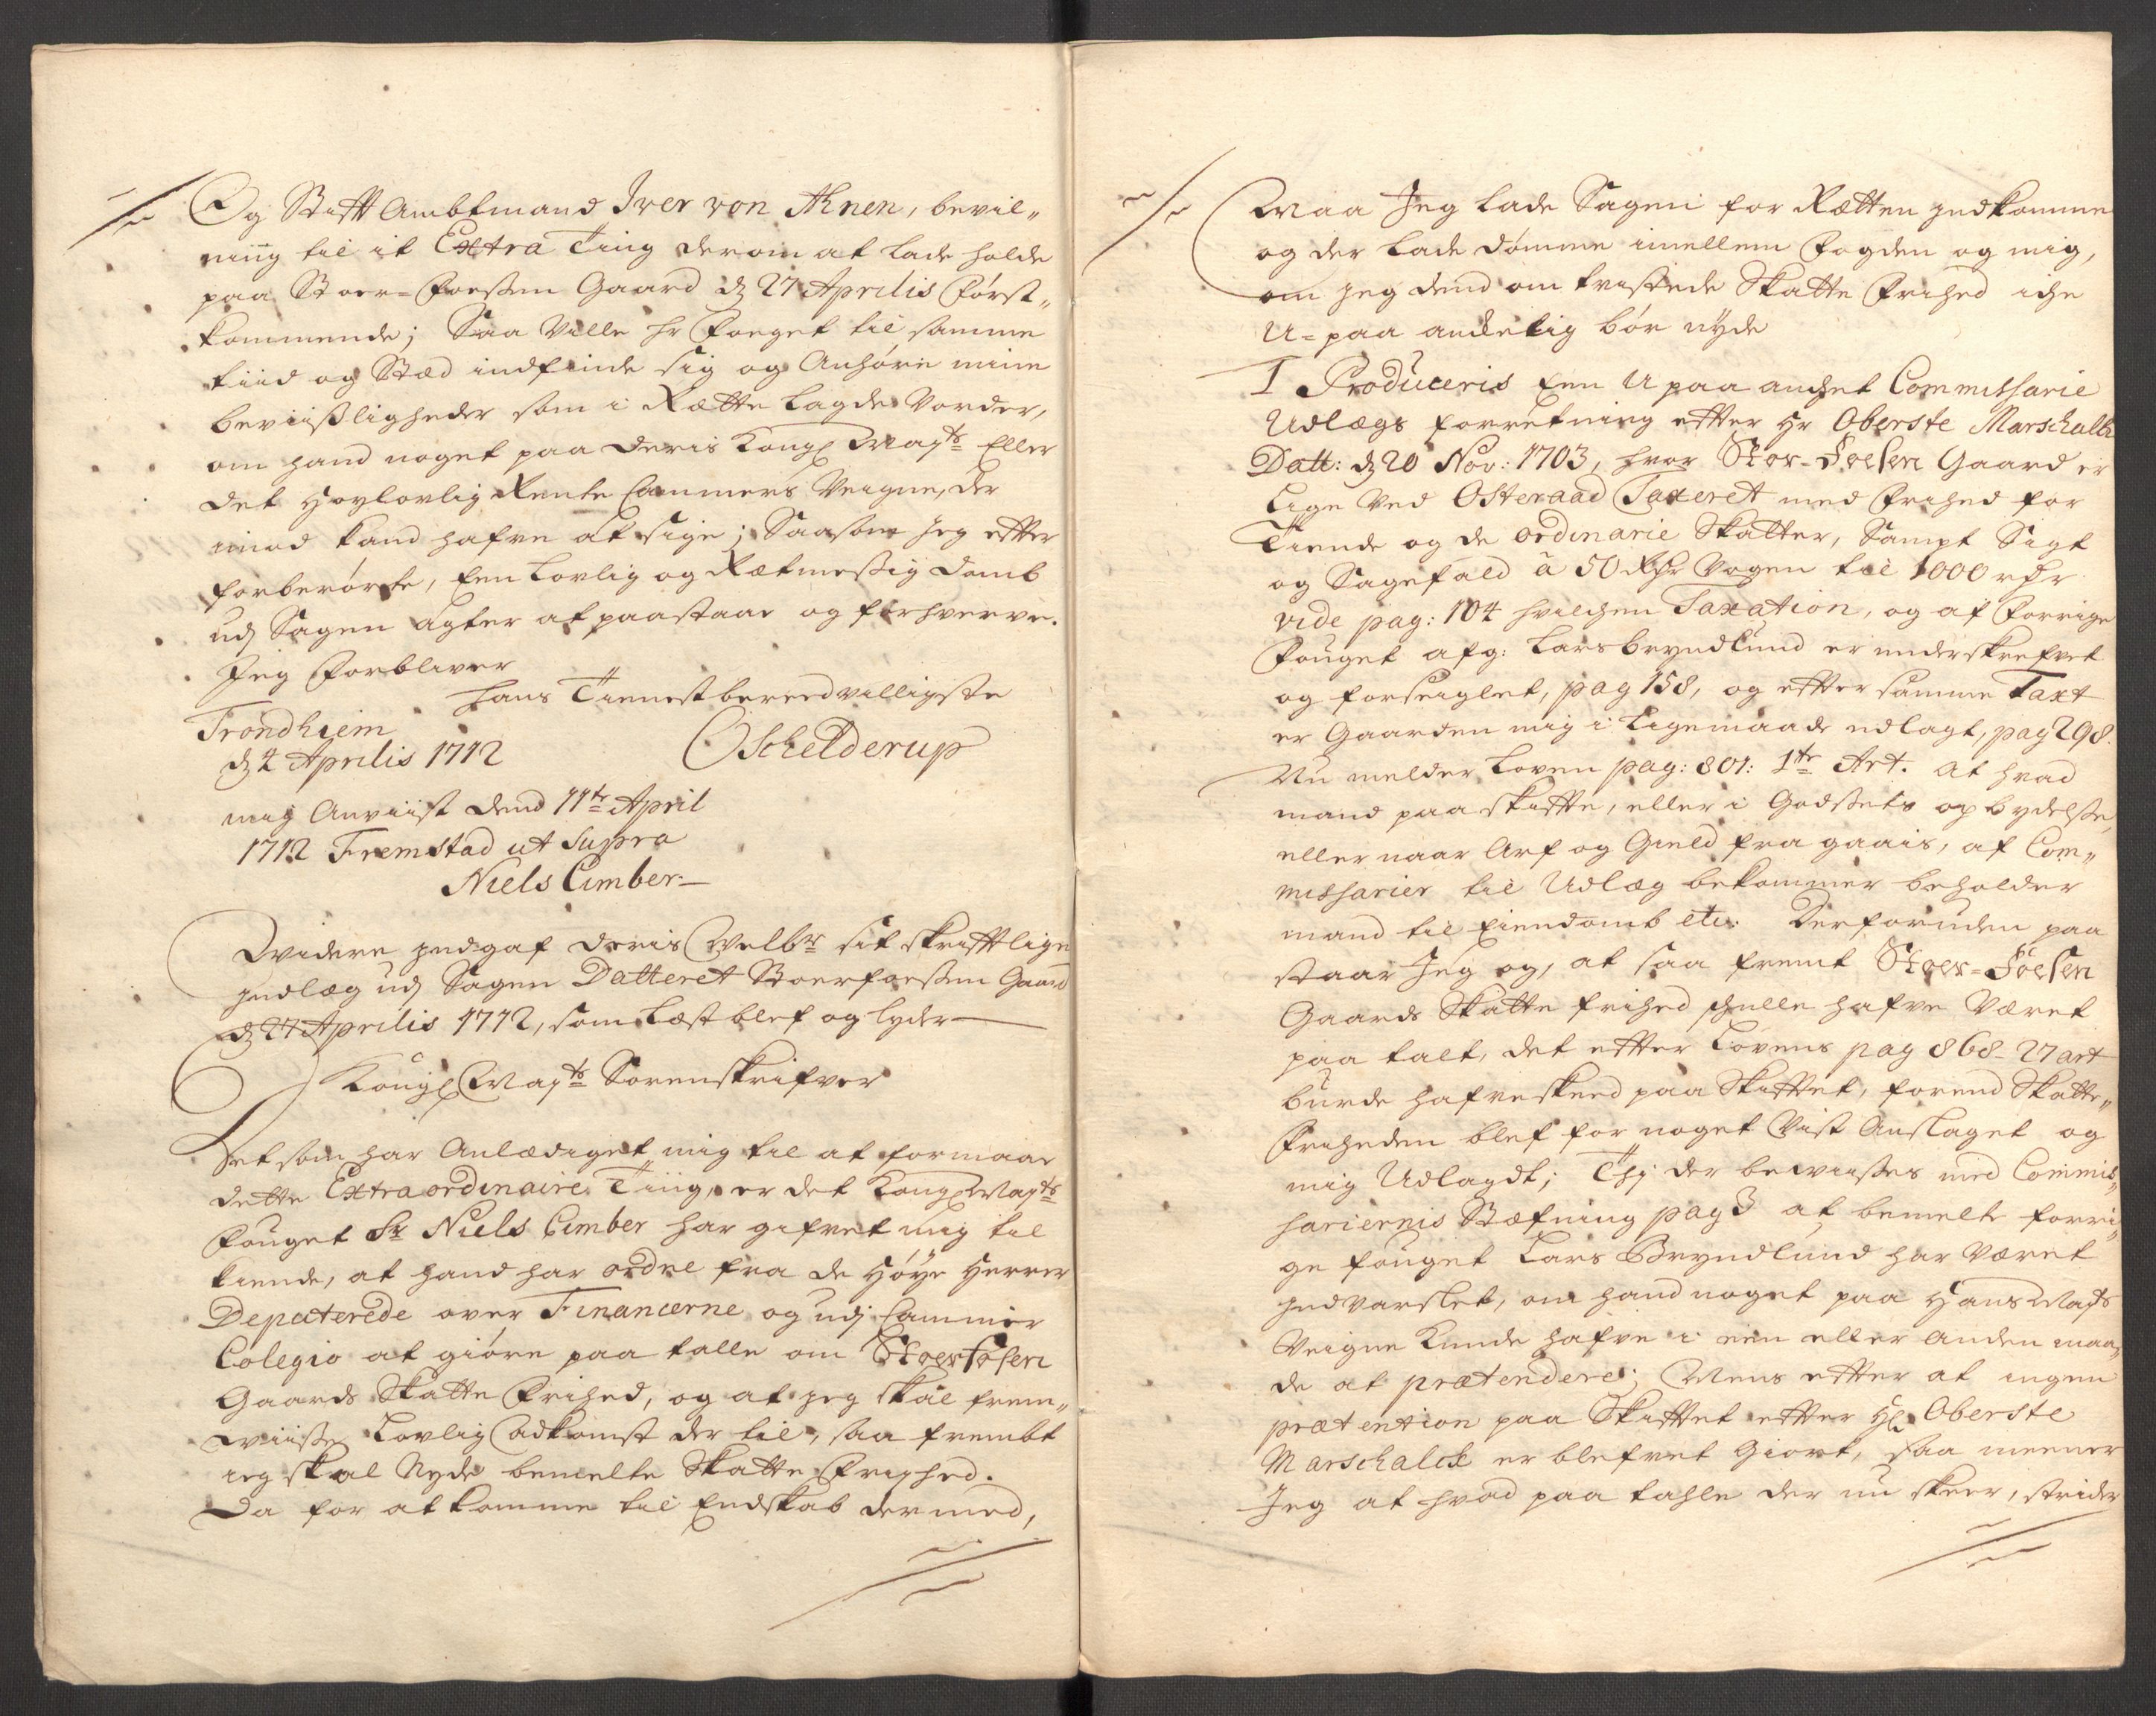 Og Stifft Ambtmand Iver von Ahnen, bevil„
ning til it Extra Ting derom at lade holde
paa Stoer-Foessen Gaard dȝ 27 Aprilis Først„
kommende; Saa Ville hr Foeget til samme
tiid og Stæd indfinde sig og Anhøre mine
beviißligheder som i Rætte lagde Vorder,
om hand noget paa deris Kongl Mayts Eller
det Høylovlig Rente Cammers Veigne, der
imod kand hafve at sige; Saasom jeg effter
forberørte, Een Lovlig og Rætmessig domb
udj Sagen agter at paastaae og forhverve.
Jeg Forbliver
Hans Tienestbereedvilligste
Trondhiem
dȝ 4 Aprilis 1712 OSchelderup
mig Anviist dend 11te April
1712 Fremstad ut Supra
Niels Cimber
Widere indgaf deris Welbr sit skrifftlige
indlæg udj Sagen Datteret Stoerfoessen Gaard
dȝ 27 Aprilis 1712, som Læst blef og lyder
Kongl Mayts Sorenskrifver
Det som har Anlædiget mig til at formaae
dette Extraordinaire Ting, er det Kongl Mayts
Fouget Sr Niels Cimber har gifvet mig til
kiende, at hand har ordre fra de Høye Herrer
Deputerede over Financerne og udj Cammer
Colegio at giøre paa talle om Stoerfosen
Gaards Skatte Frihed, og at jeg skal frem„
wiisse Lovlig Adkomst der til, saa frembt
jeg skal Nyde bemelte Skatte Frihed.
Da for at komme til Endskab dermed,
Maa Jeg lade Sagen for Rætten indkomme
og der lade dømme imellem Fogden og mig,
om jeg dend om tvistede Skatte Frihed iche
U-paa anketlig bør nyde
I Produceris Een U paa anchet Commissarie
Udlægs forretning effter Hr Oberste Marschalk
Datt: dȝ 20 Nov: 1703, hvor Stor-Foesen Gaard er
Lige Ved Østeraad Taxeret med Frihed for
Tiende og de ordinarie Skatter, Sampt Sigt
og Sagefald à 50 Rdr Vogen til 1000 rdr
vide pag: 104 hvilchen Taxation, og af Forrige
Fouget afg: Lars Bryndlund er underskrefvet
og forseiglet, pag 158, og effter samme Taxt
er Gaarden mig i Ligemaade udlagt, pag 298.
Nu melder Loven pag: 801: 1te Art. at hvad
mand paa skiffte, eller i Godssets opbydelsse,
eller naar Arf og Gield fra gaais, af Com„
missarier til Udlæg bekommer beholder
mand til Eiendomb etc. Derforuden paa
staar Jeg og, at saa fremt Stoer-Foesen
Gaards Skatte frihed schulle hafve Været
paa talt, det effter Lovens pag 868-27 art
burde hafve skeed paa Skifftet, forend Skatte„
Friheden blef for noget Vist Anslaget og
mig Udlagdt; Thj der bewiisses med Commis„
sariernis Stæfning pag 3 at bemelte forri„
ge fouget Lars Bryndlund har Været
indvarslet, om hand noget paa Hans Mayts
Veigne kunde hafve i een eller anden maa„
de at prætendere; Mens effter at ingen
prætention paa Skifftet effter Hl Oberste
Marschalck er blefvet giort, saa meener
Jeg at hvad paa tahle der nu skeer, strider